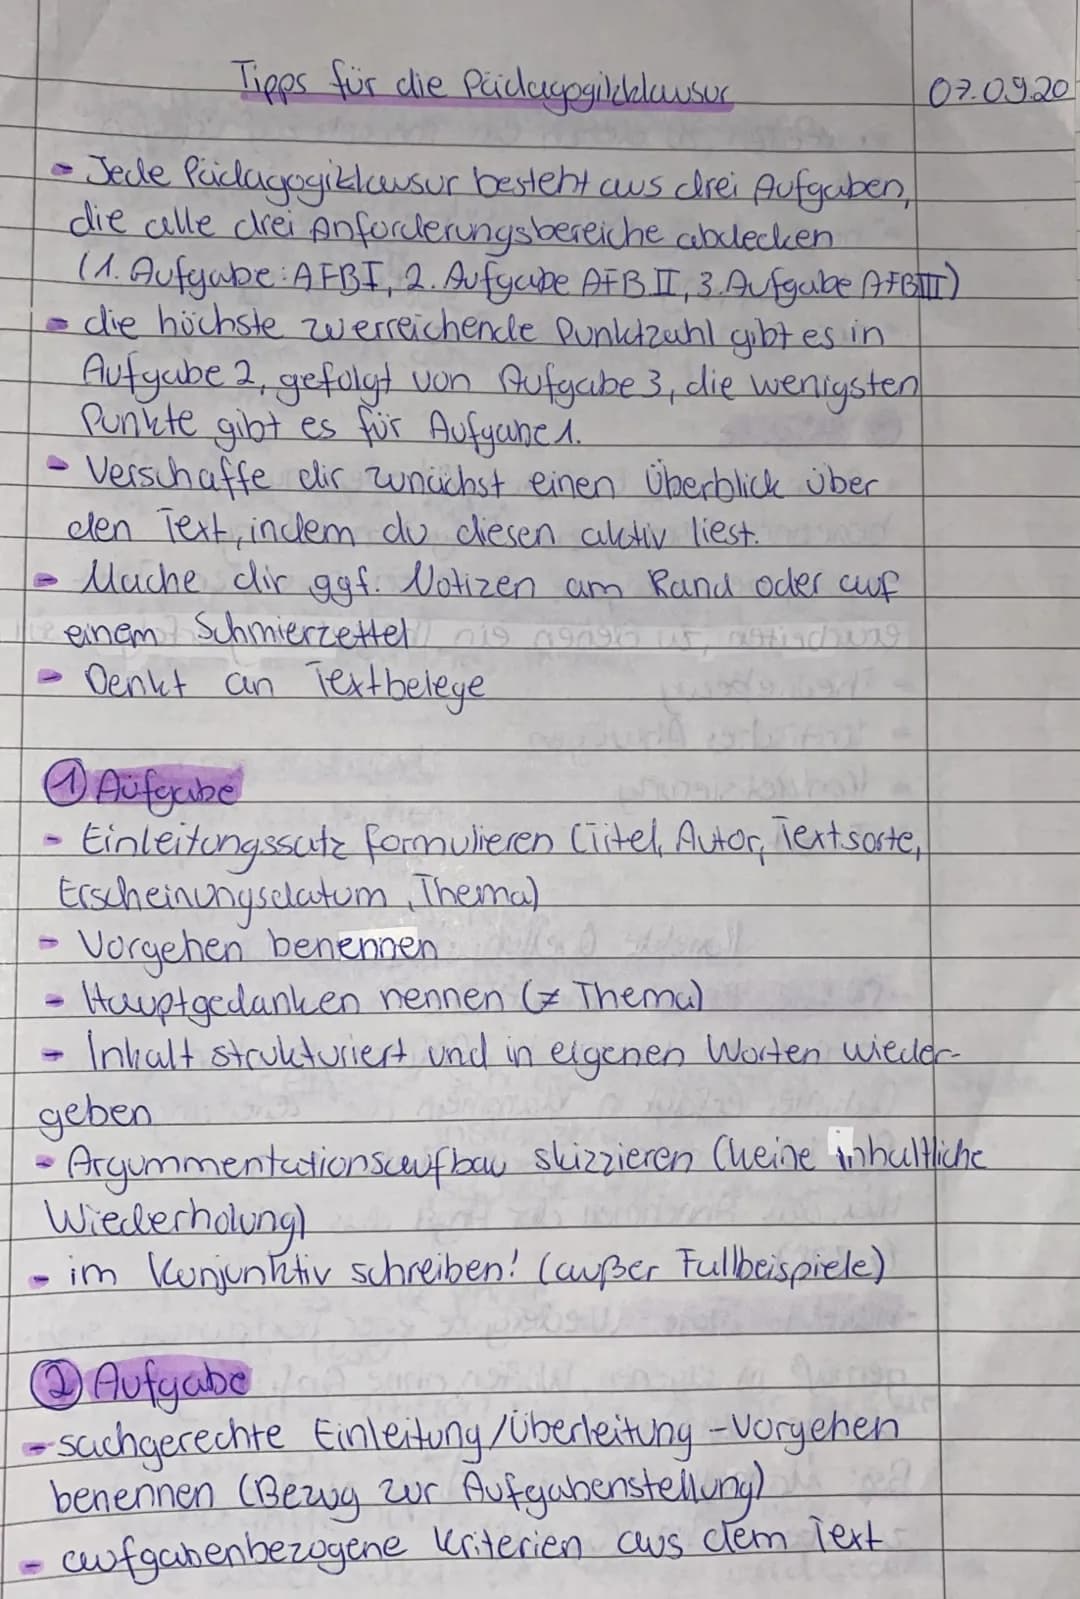 Tipps für die Pädagogikklausur
07.09.20
- Jede Pädagogiklausur besteht aus drei Aufgaben,
die alle drei Anforderungsbereiche abdecken
(1. Aufgabe: AFB I, 2. Aufgabe AFB II, 3. Aufgabe AFB III)
- die höchste zuerreichende Punktzahl gibt es in
Aufgabe 2, gefolgt von Aufgabe 3, die wenigsten
Punkte gibt es für Aufgabe 1.
- Verschaffe dir zunächst einen Überblick über
den Text, indem du diesen aktiv liest.
- Mache dir ggf. Notizen am Rand oder auf
einem Schmierzettel
- Denkt an Textbelege
① Aufgabe
- Einleitungssatz formulieren (Titel, Autor, Textsorte,
Erscheinungsdatum, Thema)
- Vorgehen benennen
- Hauptgedanken nennen (≠ Thema)
- Inhalt strukturiert und in eigenen Worten wieder-
geben
- Argummentationsaufbau skizzieren (keine inhaltliche
Wiederholung)
- im Konjunktiv schreiben! (außer Fallbeispiele)
② Aufgabe
- sachgerechte Einleitung/Überleitung - Vorgehen
benennen (Bezug zur Aufgabenstellung)
- aufgabenbezogene Kriterien aus dem Text